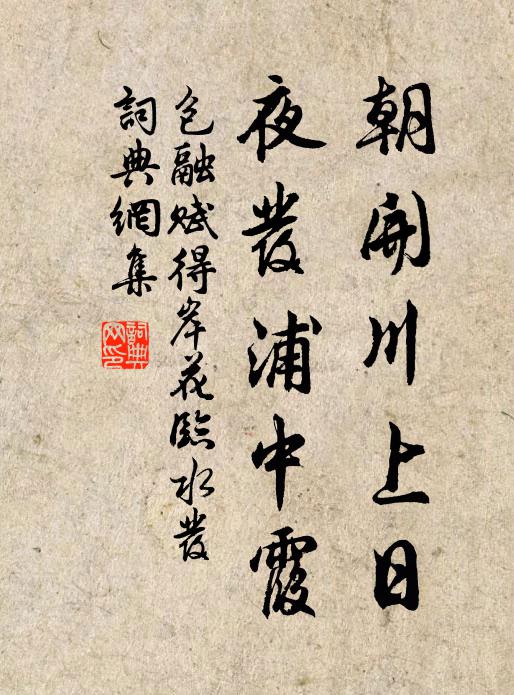 朝開川上日
夜發浦中霞
包融賦得岸花臨水發
詞典網集
詞典
网印